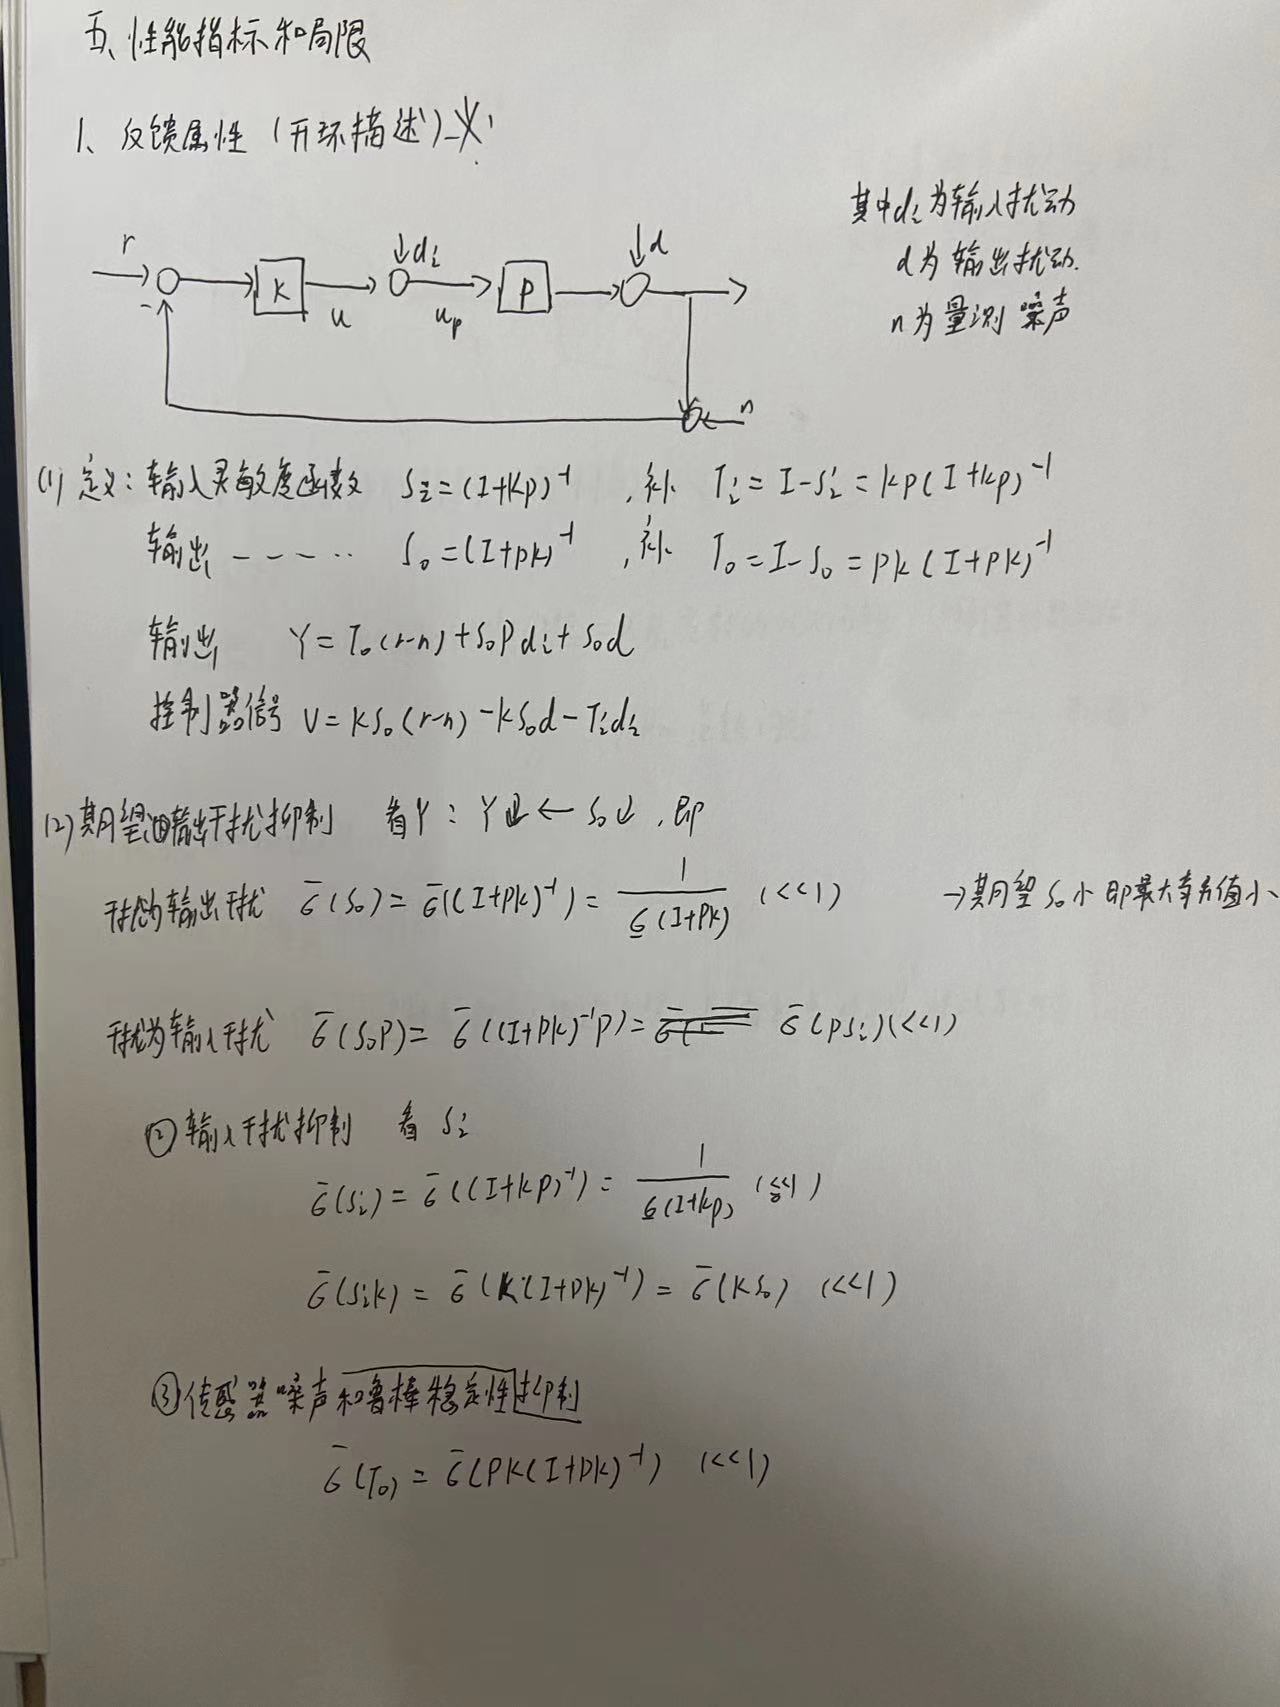 五、性能指标和局限
1、反馈属性(开环描述)
其中di为输入扰动
d为输出扰动.
n为量测噪声
r K u di up P d
- n
(1) 定义: 输入灵敏度函数 Si=(I+KP)⁻¹ ,补 Ti=I-Si=KP(I+KP)⁻¹
输出 ---- ·· So=(I+PK)⁻¹ ,补 To=I-So=PK(I+PK)⁻¹
输出 Y=To(r-n)+SoPdi+Sod
控制器信号 U=KSo(r-n)-KSod-Tidi
(2)期望 输出干扰抑制 看Y: Y↓←So↓,即
干扰为输出干扰 σ̄(So)=σ̄((I+PK)⁻¹)=1/σ̲(I+PK) (<<1) →期望So小即最大奇异值小
干扰为输入干扰 σ̄(SoP)=σ̄((I+PK)⁻¹P)= σ̄(PSi)(<<1)
②输入干扰抑制 看 Si
σ̄(Si)=σ̄((I+KP)⁻¹)=1/σ̲(I+KP) (<<1)
σ̄(SiK)=σ̄(K(I+PK)⁻¹)=σ̄(KSo) (<<1)
③传感器噪声和鲁棒稳定性抑制
σ̄(To)=σ̄(PK(I+PK)⁻¹) (<<1)